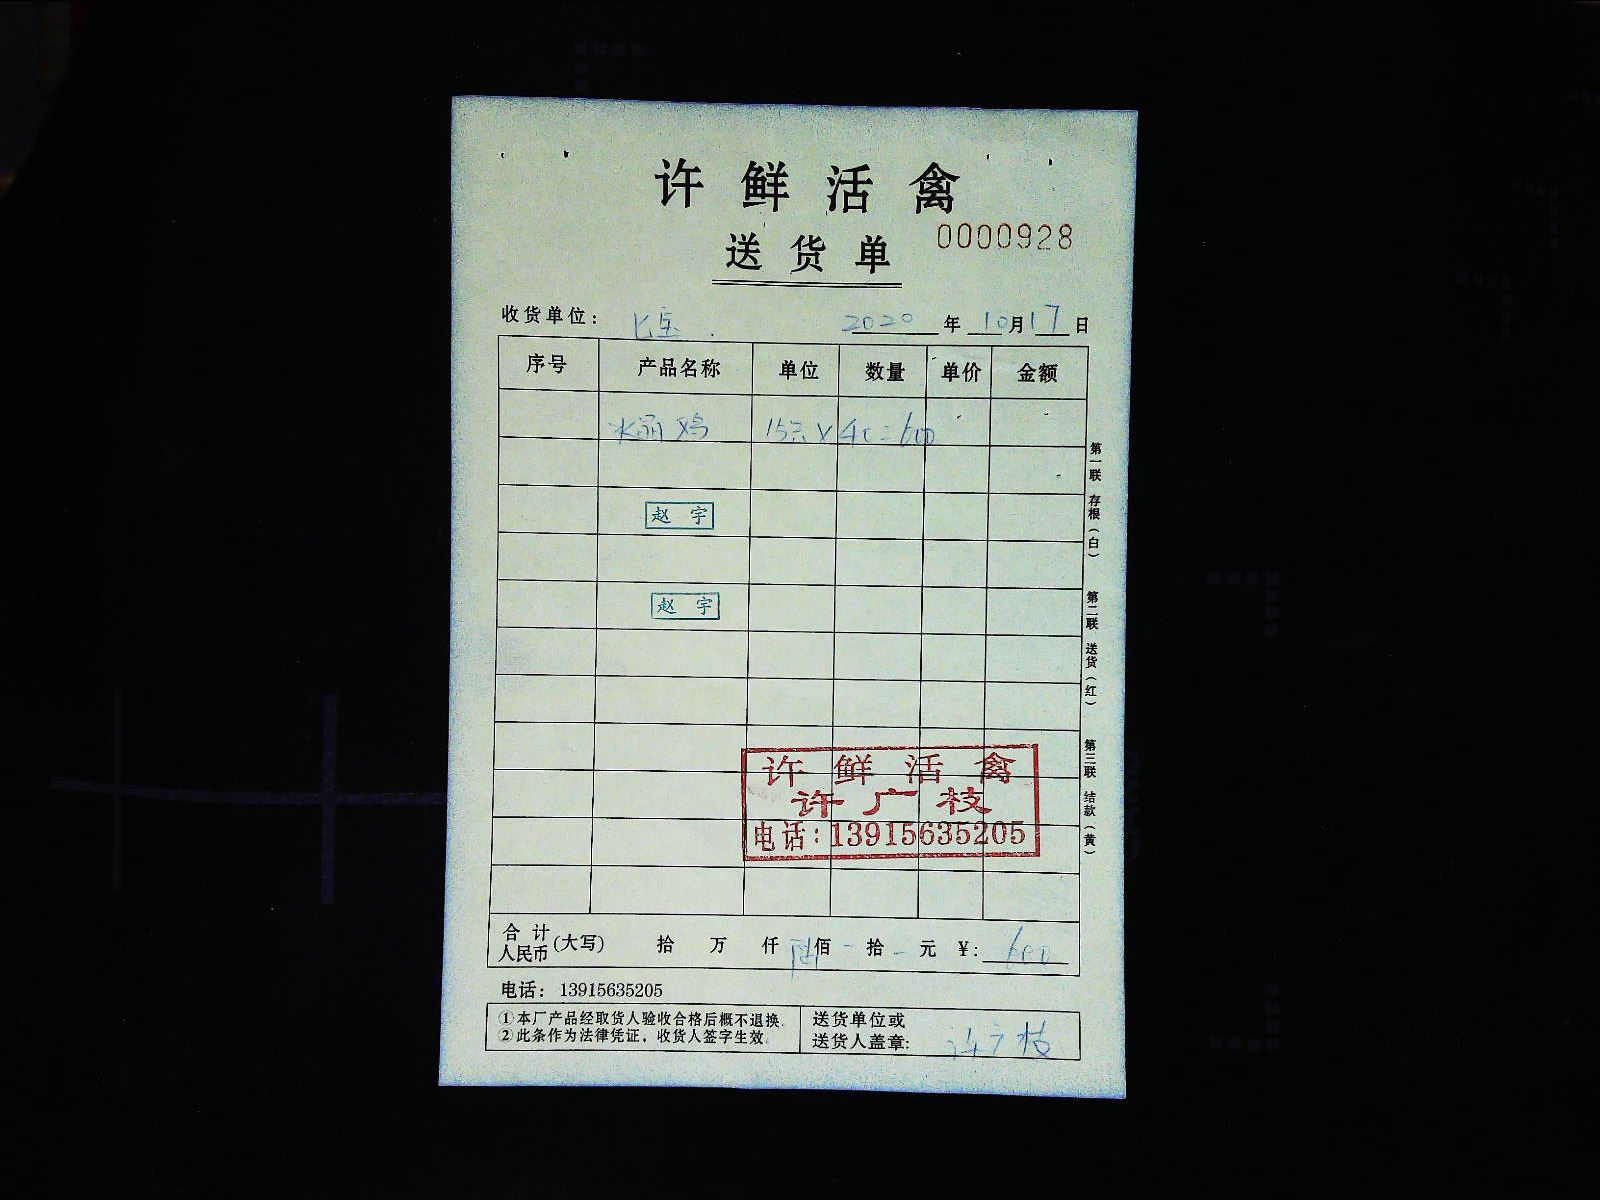 许鲜活禽
送货单 0000928
收货单位： 2020年10月17日
序号 产品名称 单位 数量 单价 金额
鸡 15只×40=600
赵宇
赵宇
第一联 存根（白）
第二联 送货（红）
第三联 结款（黄）
许鲜活禽
许广枝
电话：13915635205
合计人民币(大写) 拾 万 仟 陆佰 - 拾 - 元 ¥：600
电话：13915635205
①本厂产品经取货人验收合格后概不退换。
②此条作为法律凭证，收货人签字生效。
送货单位或
送货人盖章：许广枝